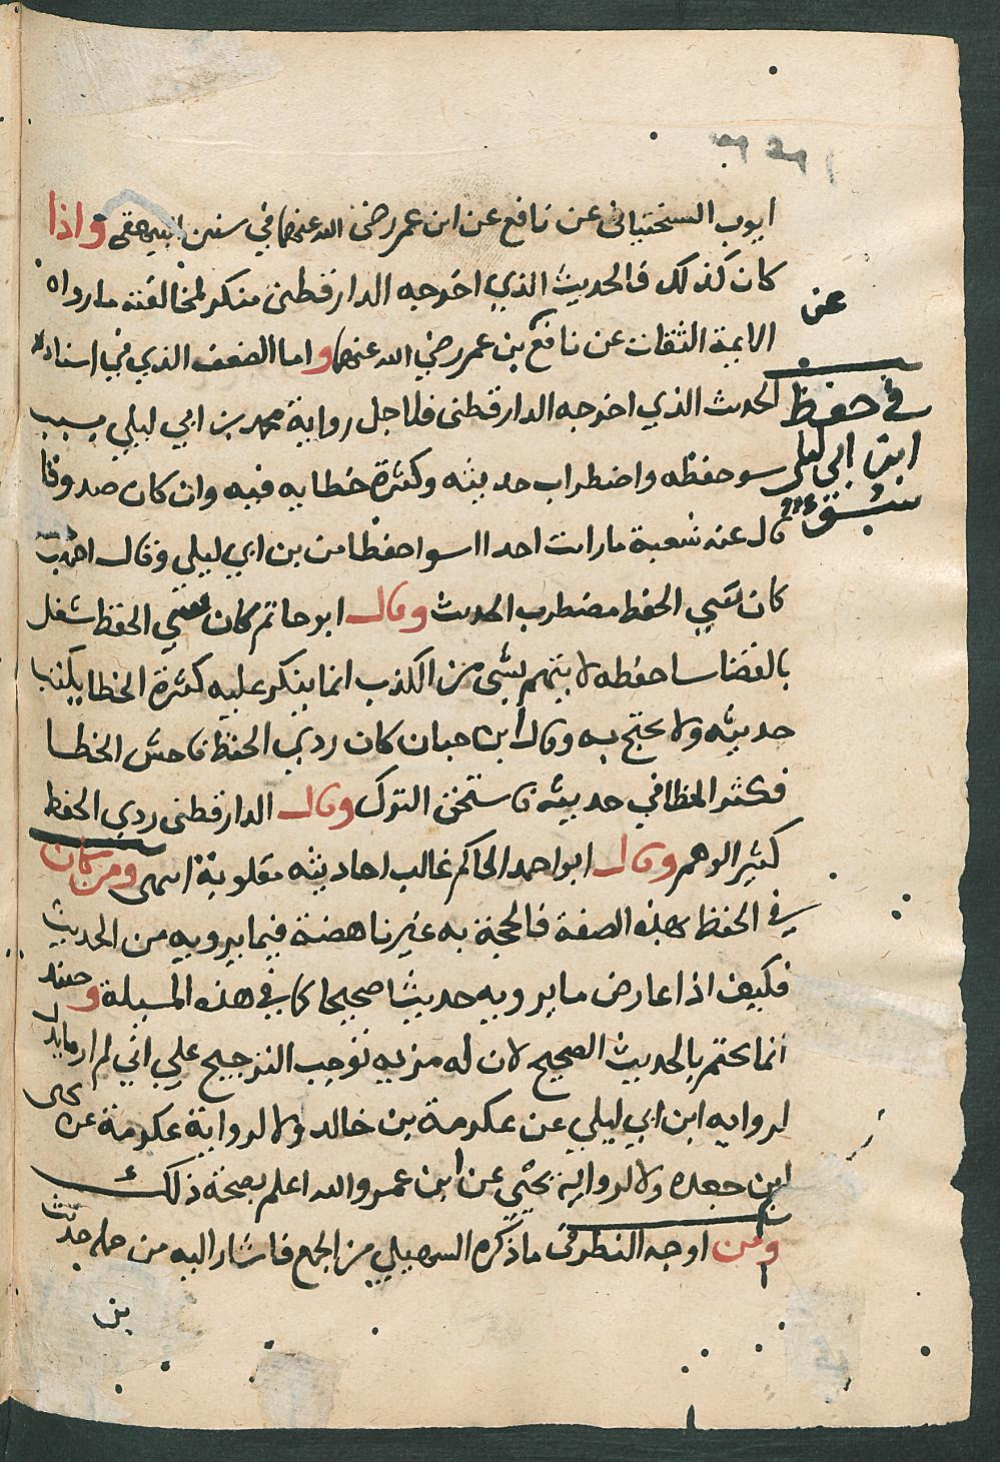 ايوب السختياني عن نافع عن ابن عمر رضي الله عنهما في سنن البيهقي واذا
كان كذلك فالحديث الذي اخرجه الدارقطني منكر لمخالفته ما رواه
عن
الايمة الثقات عن نافع بن عمر رضي الله عنهما واما الضعف الذي في اسناد
في حفظ
ابن ابي ليلى
الحديث الذي اخرجه الدارقطني فلاجل رواية محمد بن ابي ليلي بسبب
سو حفظه واضطراب حديثه وكثرة خطايه فيه وان كان صدوقا
قال عنه شعبة ما رايت احدا اسوا حفظا من بن ابي ليلى وقال احمد
كان سيي الحفظ مضطرب الحديث وقال ابو حاتم كان سيي الحفظ شغل
بالقضا سا حفظه لا يتهم بشي من الكذب انما ينكر عليه كثرة الخطا يكتب
حديثه ولا يحتج به وقال ابن حبان كان ردي الحفظ فاحش الخطا
فكثر الخطا في حديثه فاستحق الترك وقال الدارقطني ردي الحفظ
كثير الوهم وقال ابو احمد الحاكم غالب احاديثه مقلوبة انتهى ومن كان
في الحفظ بهذه الصفة فالحجة به غير ناهضة فيما يرويه من الحديث
فكيف اذا عارض ما يرويه حديثا صحيحا كما في هذه المسيلة وحينئذ
انما يحتج بالحديث الصحيح لان له مزيه توجب الترجيح علي اني لم ار ما يدل
لروايه ابن ابي ليلي عن عكرمة بن خالد ولا لرواية عكرمة عن يحيى
ابن جعده ولا لرواية يحيي عن ابن عمر والله اعلم بصحة ذلك
ومن اوجه النظر في ما ذكره السهيلي من الجمع فاشار اليه من حمله حديث
بن